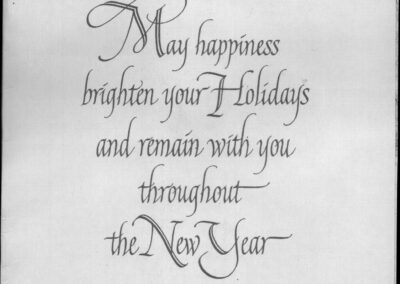 May happiness
brighten your Holidays
and remain with you
throughout
the New Year